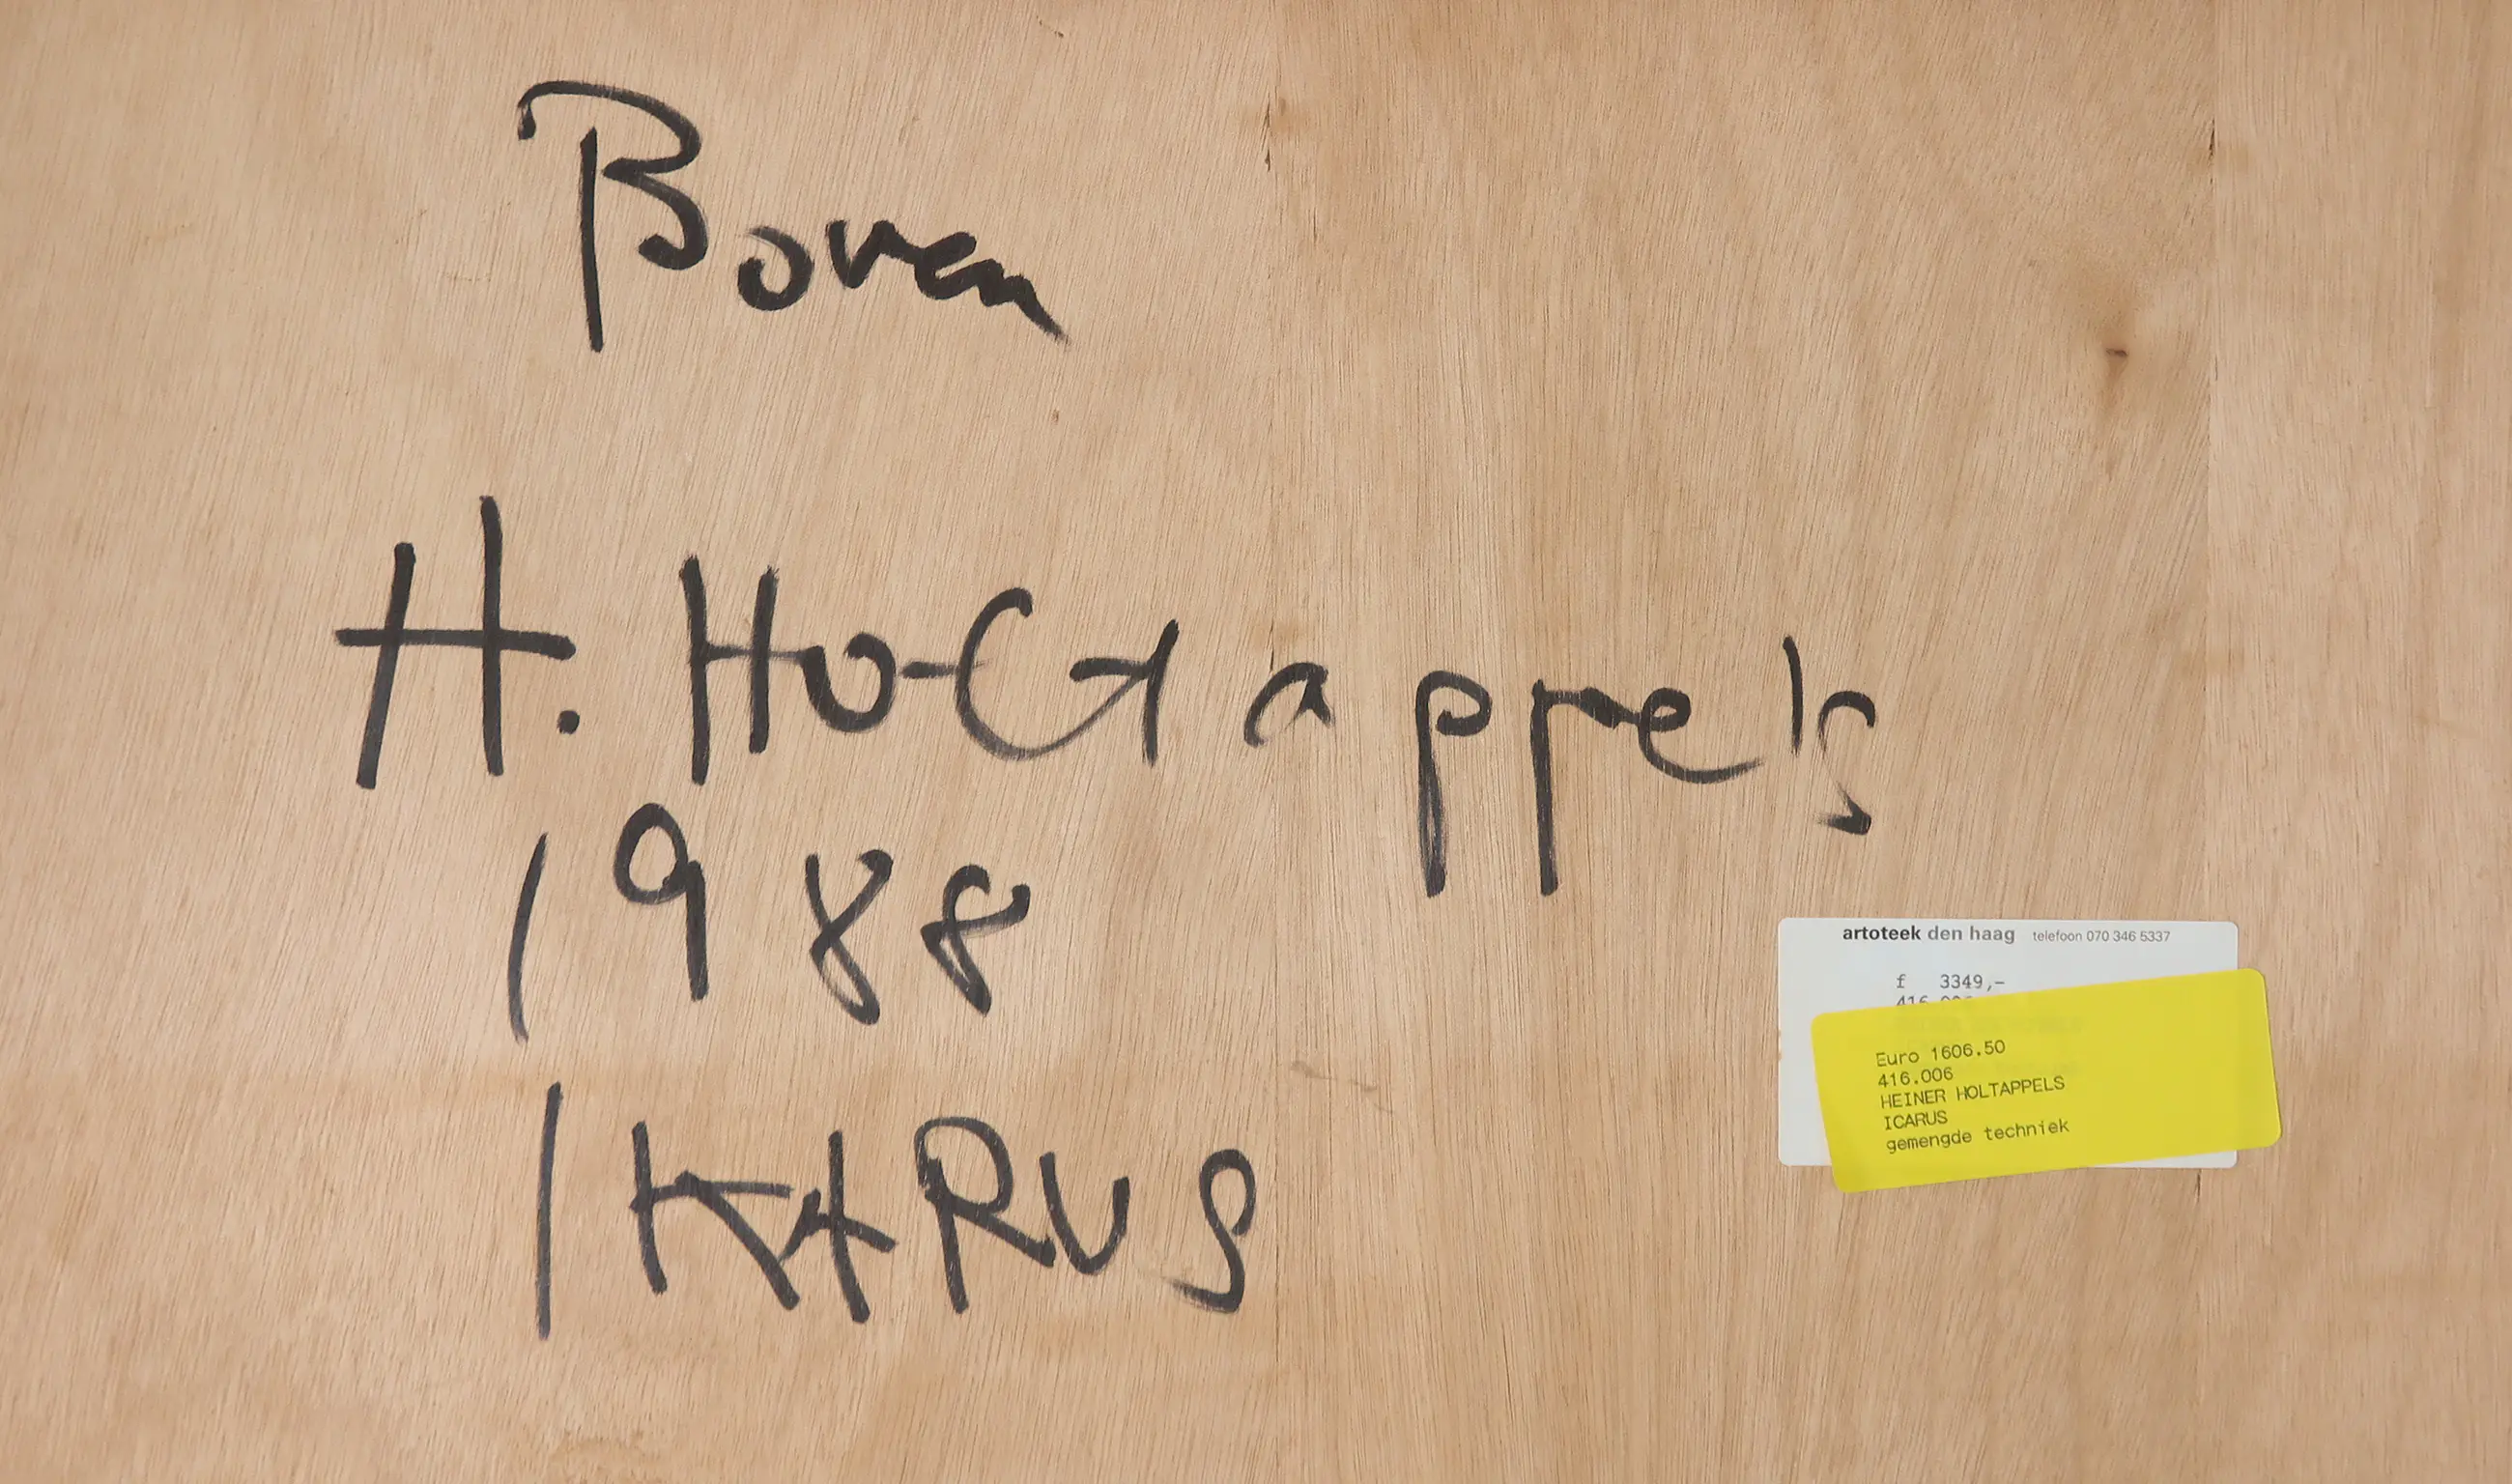 Boven
H. Holtappels
1988
IKARUS
artoteek den haag telefoon 070 346 5337
f 3349,-
Euro 1606.50
416.006
HEINER HOLTAPPELS
ICARUS
gemengde techniek